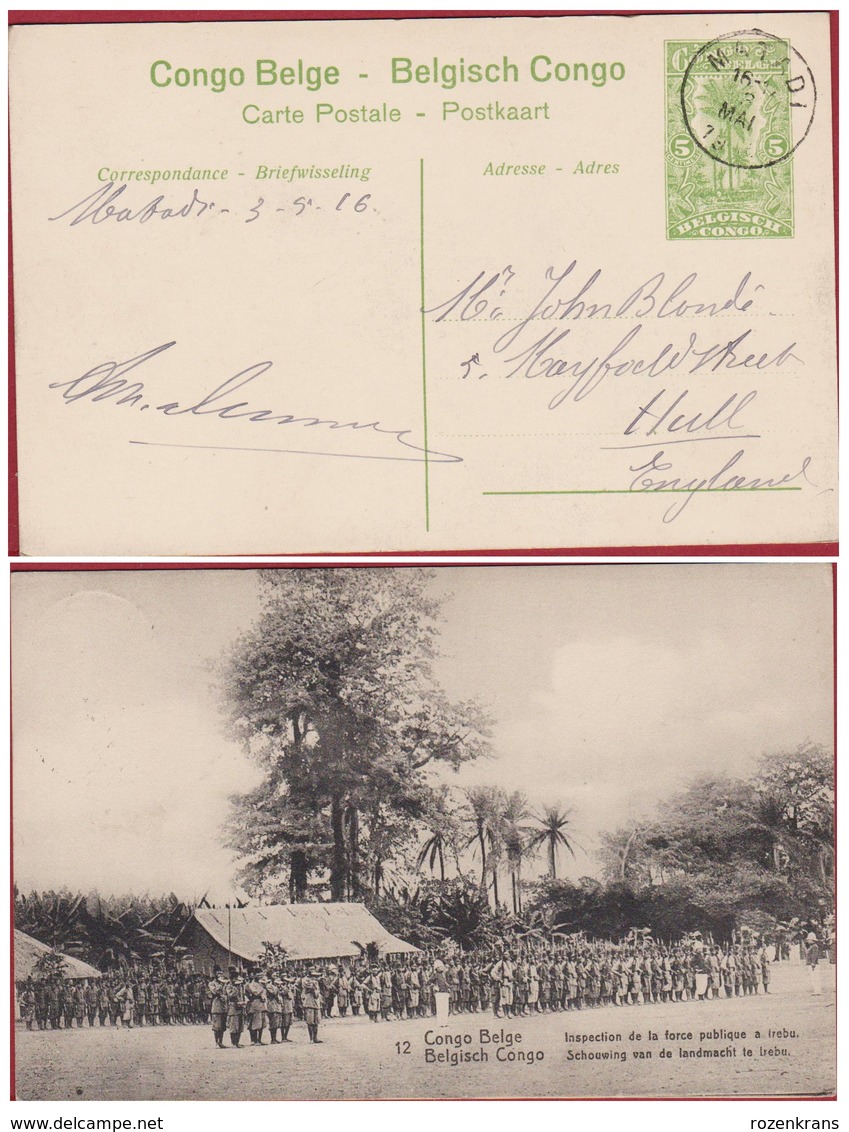 Congo Belge - Belgisch Congo
Carte Postale - Postkaart
Correspondance - Briefwisseling
Adresse - Adres
5 5
BELGISCH
CONGO
MATADI
16-
3
MAI
19
3-5-16
Mr. John Blonde
5. Mayfield street
Hull
England
12 Congo Belge
Belgisch Congo
Inspection de la force publique a Irebu.
Schouwing van de landmacht te Irebu.
rozenkrans